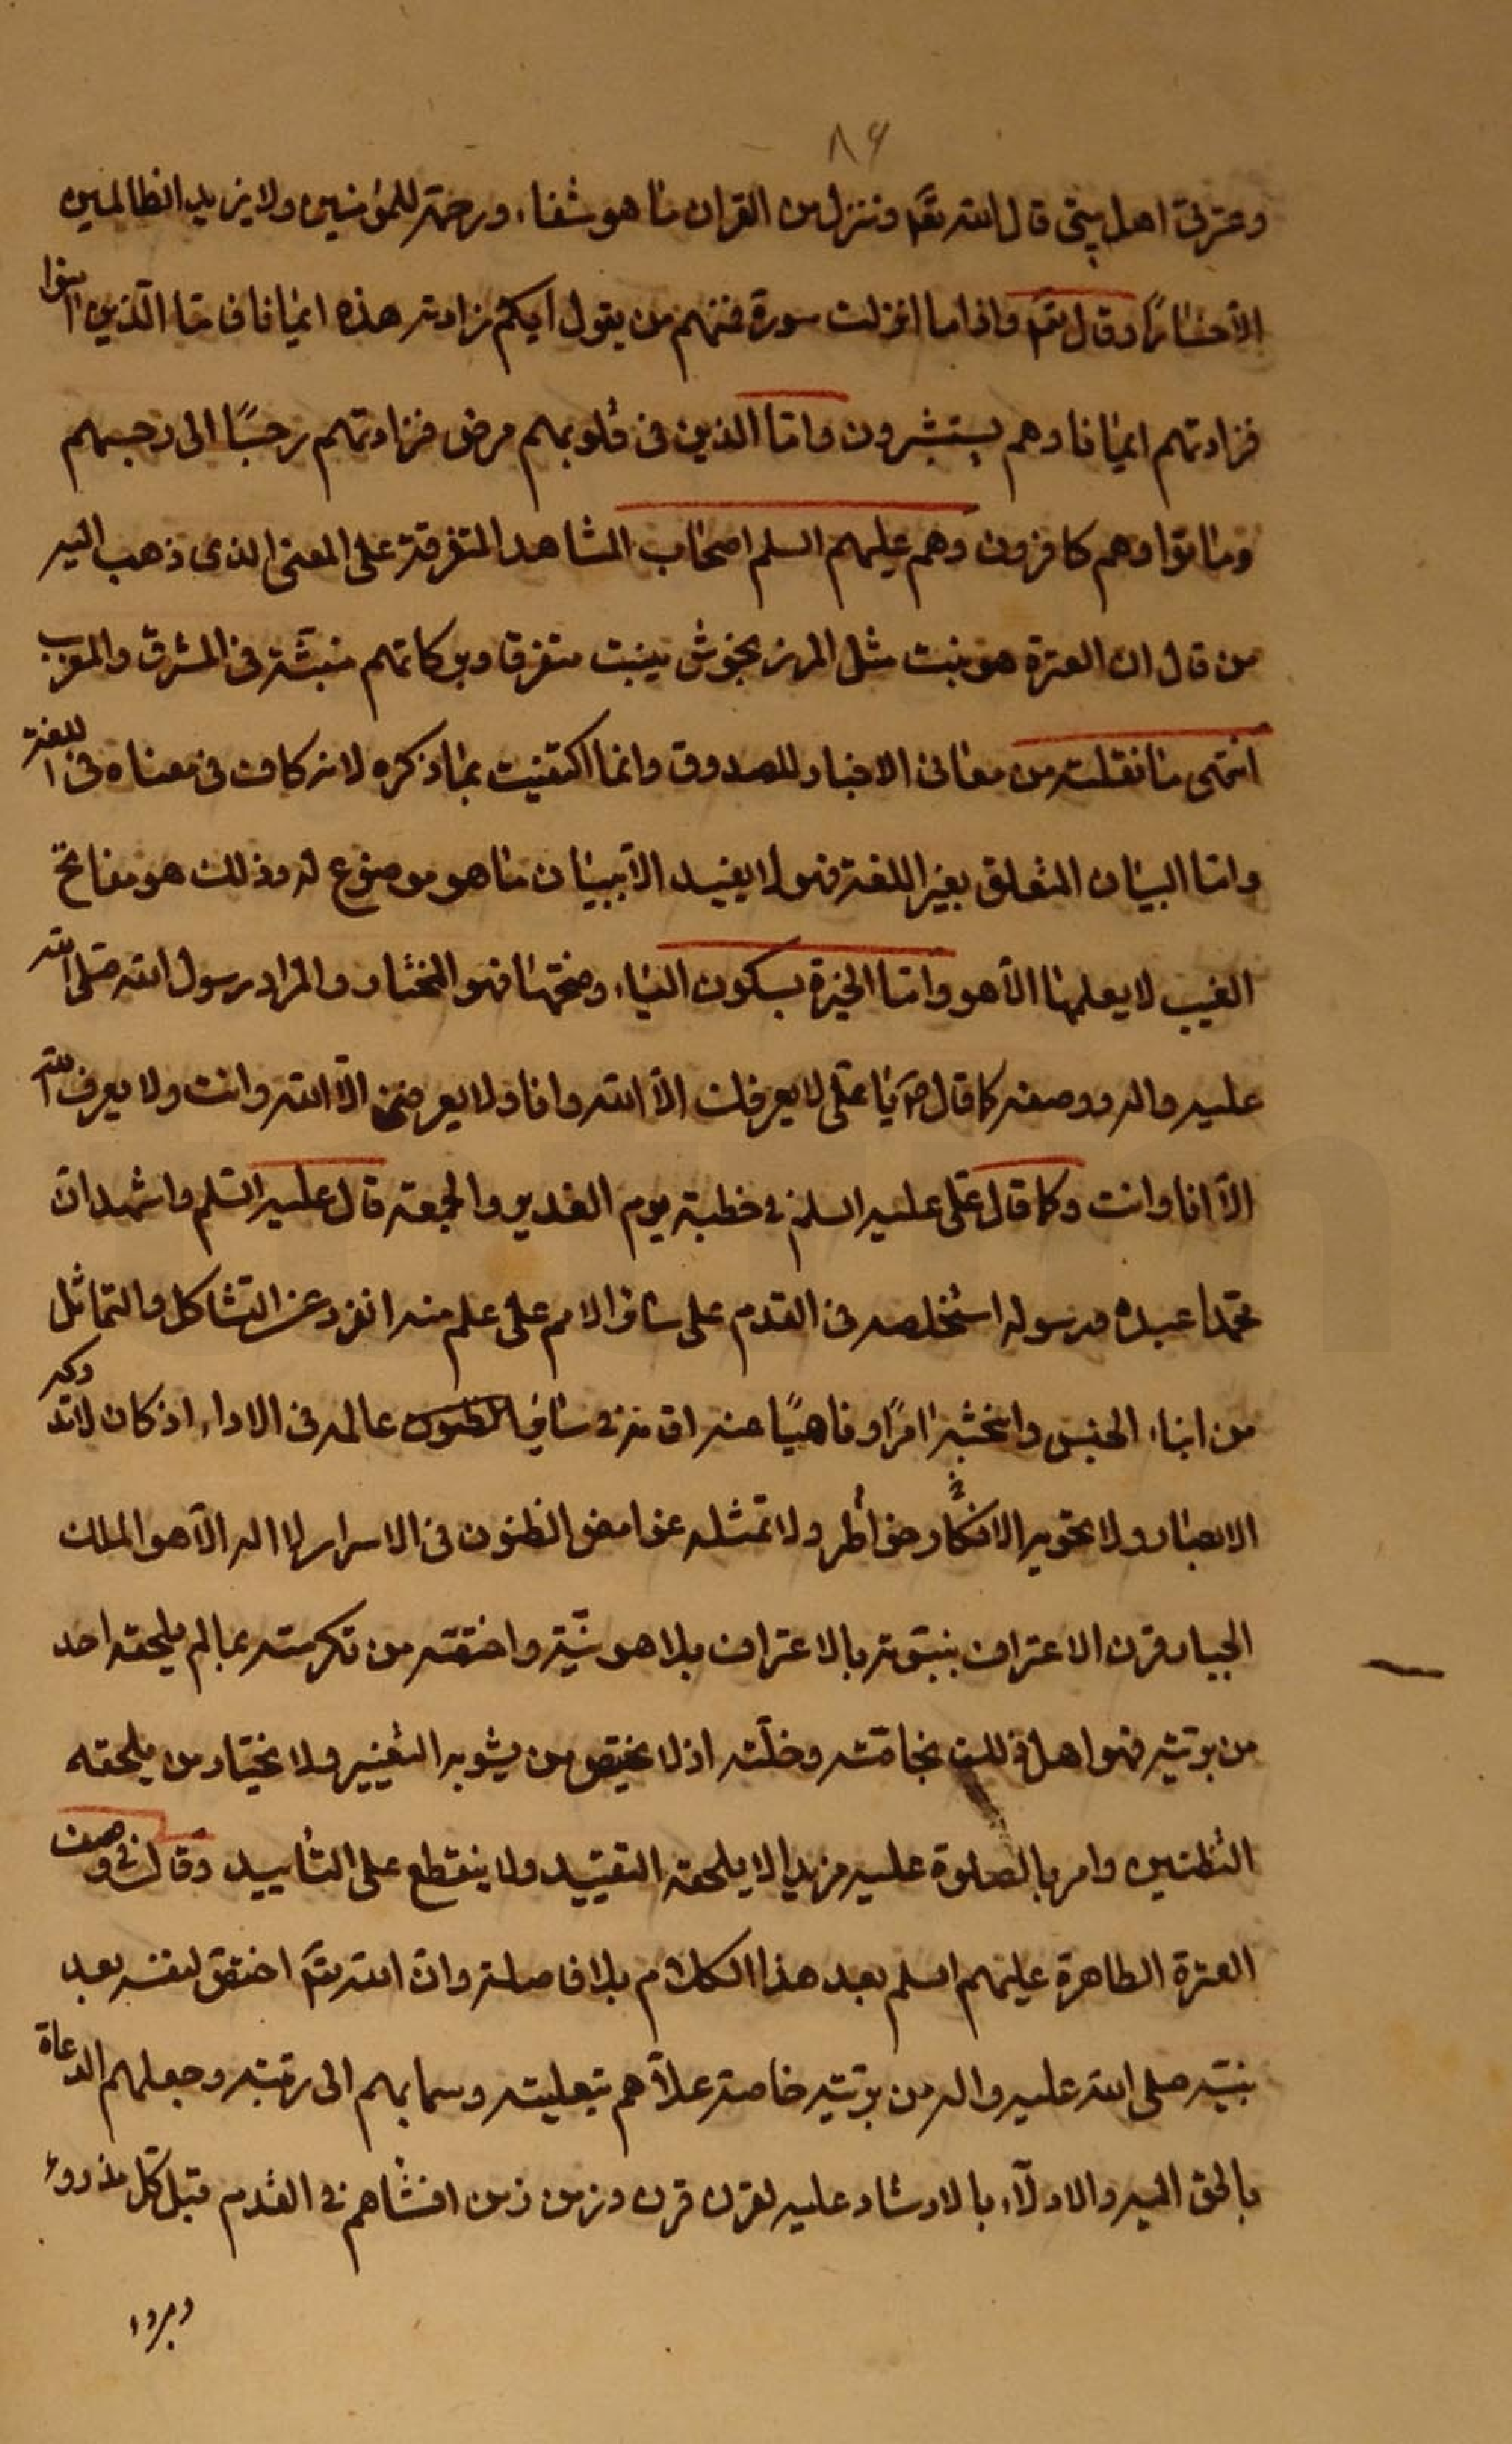 ٨٩
وعترتی اهل بیتی قال الله تعٓ وننزل من القران ما هو شفاء ورحمة للمؤمنین ولا یزید الظالمین
الّا خسارًا وقال تعٓ واذا ما انزلت سورة فمنهم من یقول ایکم زادته هذه ایمانا فامّا الّذین امنوا
فزادتهم ایمانا وهم یستبشرون وامّا الذین فی قلوبهم مرض فزادتهم رجسًا الی رجسهم
وماتوا وهم کافرون وهم علیهم السلم اصحاب المشاهد المتفرقة علی المعنی الذی ذهب الیه
من قال ان العترة هو نبت مثل المرزنجوش ینبت متفرقا وبرکاتهم منبثّة فی المشرق والمغرب
انتهی ما نقلته من معانی الاخبار للصدوق وانما اکتفیت بما ذکره لانه کاف فی معناه فی اللغة
وامّا البیان المتعلق بغیر اللغة فهو لا یفید الّا تبیان ما هو موضوع له وذلك هو مفاتح
الغیب لا یعلمها الّا هو وامّا الخیرة بسکون الیاء وفتحها فهو المختار والمراد رسول الله صلّی الله
علیه واله ووصفه کما قال صٓ یا علی لا یعرفك الّا الله وانا ولا یعرفنی الّا الله وانت ولا یعرف الله
الّا انا وانت وکما قال علی علیه السلم فی خطبة یوم الغدیر والجمعة قال علیه السّلم واشهد انّ
محمّدا عبده ورسوله استخلصه فی القدم علی سائر الامم علی علم منه انفرد عن التشاکل والتماثل
من ابناء الجنس وانتجبه امرًا وناهیًا عنه اقامه فی سائر عالمه فی الاداء اذ کان لا تدرکه
الابصار ولا تحویه خواطر الافکار ولا تمثله غوامض الظنون فی الاسرار لا اله الّا هو الملك
الجبار قرن الاعتراف بنبوّته بالاعتراف بلاهوتیّته واختصّه من تکرمته بما لم یلحقه احد
من بریّته فهو اهل ذلك بخاصّته وخلّته اذ لا یختص من یشوبه التغییر ولا یختار من یلحقه
التظنین وامر بالصلوة علیه مزیدا لا یلحقه التفنید ولا ینقطع علی التأبید وقال فی وصف
العترة الطاهرة علیهم السلم بعد هذا الکلام بلا فاصلة وانّ الله تعٓ اختصّ لنفسه بعد
نبیّه صلی الله علیه واله من بریّته خاصة علّاهم بتعلیته وسما بهم الی رتبته وجعلهم الدعاة
بالحق الیه والادلّاء بالارشاد علیه لقرن قرن وزمن زمن انشأهم فی القدم قبل کل مذروء
ومبروء